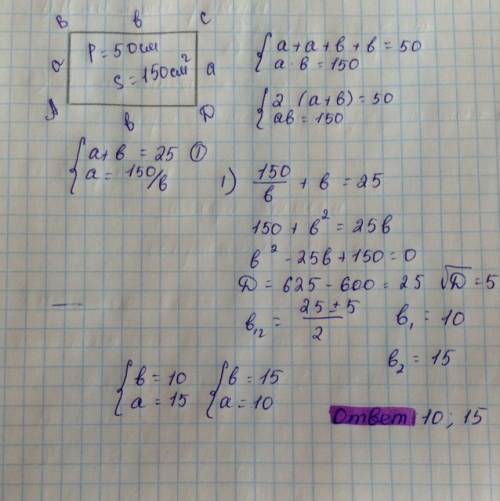 В в С
P = 50 см
S = 150 см²
а а
А в D
{ а + а + в + в = 50
а · в = 150
{ 2 (а + в) = 50
ав = 150
{ а + в = 25 ①
а = 150/в
1) 150/в + в = 25
150 + в² = 25в
в² - 25в + 150 = 0
D = 625 - 600 = 25 √D = 5
в₁₂ = (25 ± 5)/2
в₁ = 10
в₂ = 15
{ в = 10
а = 15
{ в = 15
а = 10
Ответ 10; 15